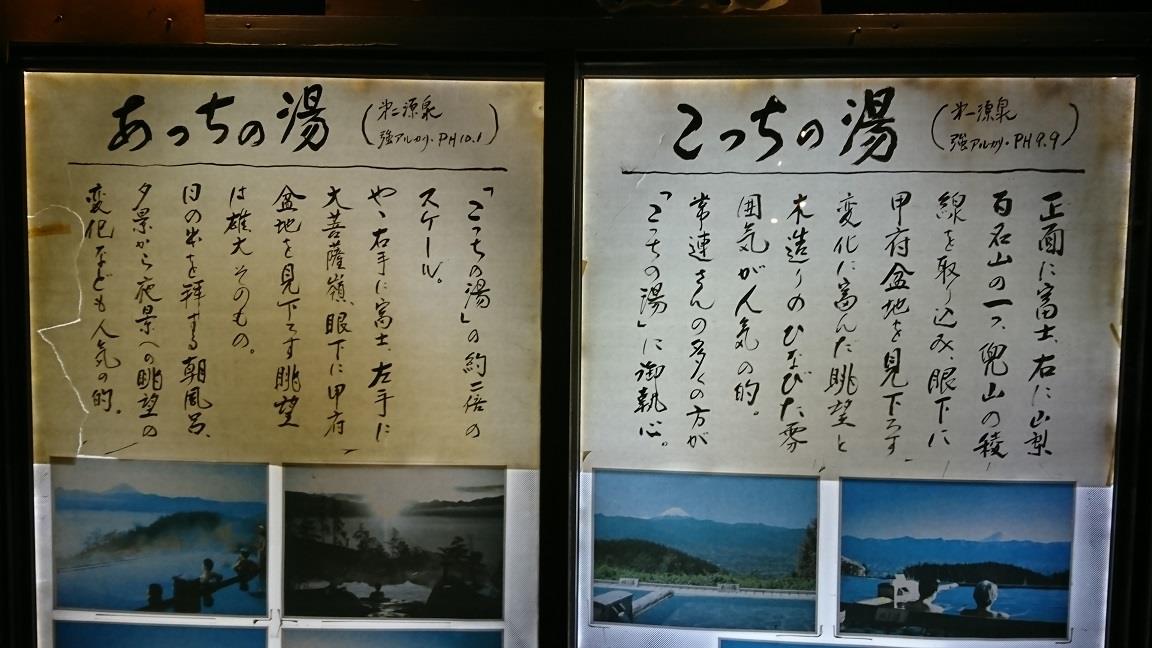 こっちの湯
(第一源泉
強アルカリ・PH9.9)
正面に富士、右に山梨
百名山の一つ、兜山の稜
線を取り込み、眼下に
甲府盆地を見下ろす。
変化に富んだ眺望と
木造りのひなびた雰
囲気が人気の的。
常連さんの多くの方が
「こっちの湯」に御執心。
あっちの湯
(第二源泉
強アルカリ・PH10.1)
「こっちの湯」の約二倍の
スケール。
やゝ右手に富士、左手に
大菩薩嶺、眼下に甲府
盆地を見下ろす眺望
は雄大そのもの。
日の出を拝する朝風呂、
夕景から夜景への眺望の
変化なども人気の的。